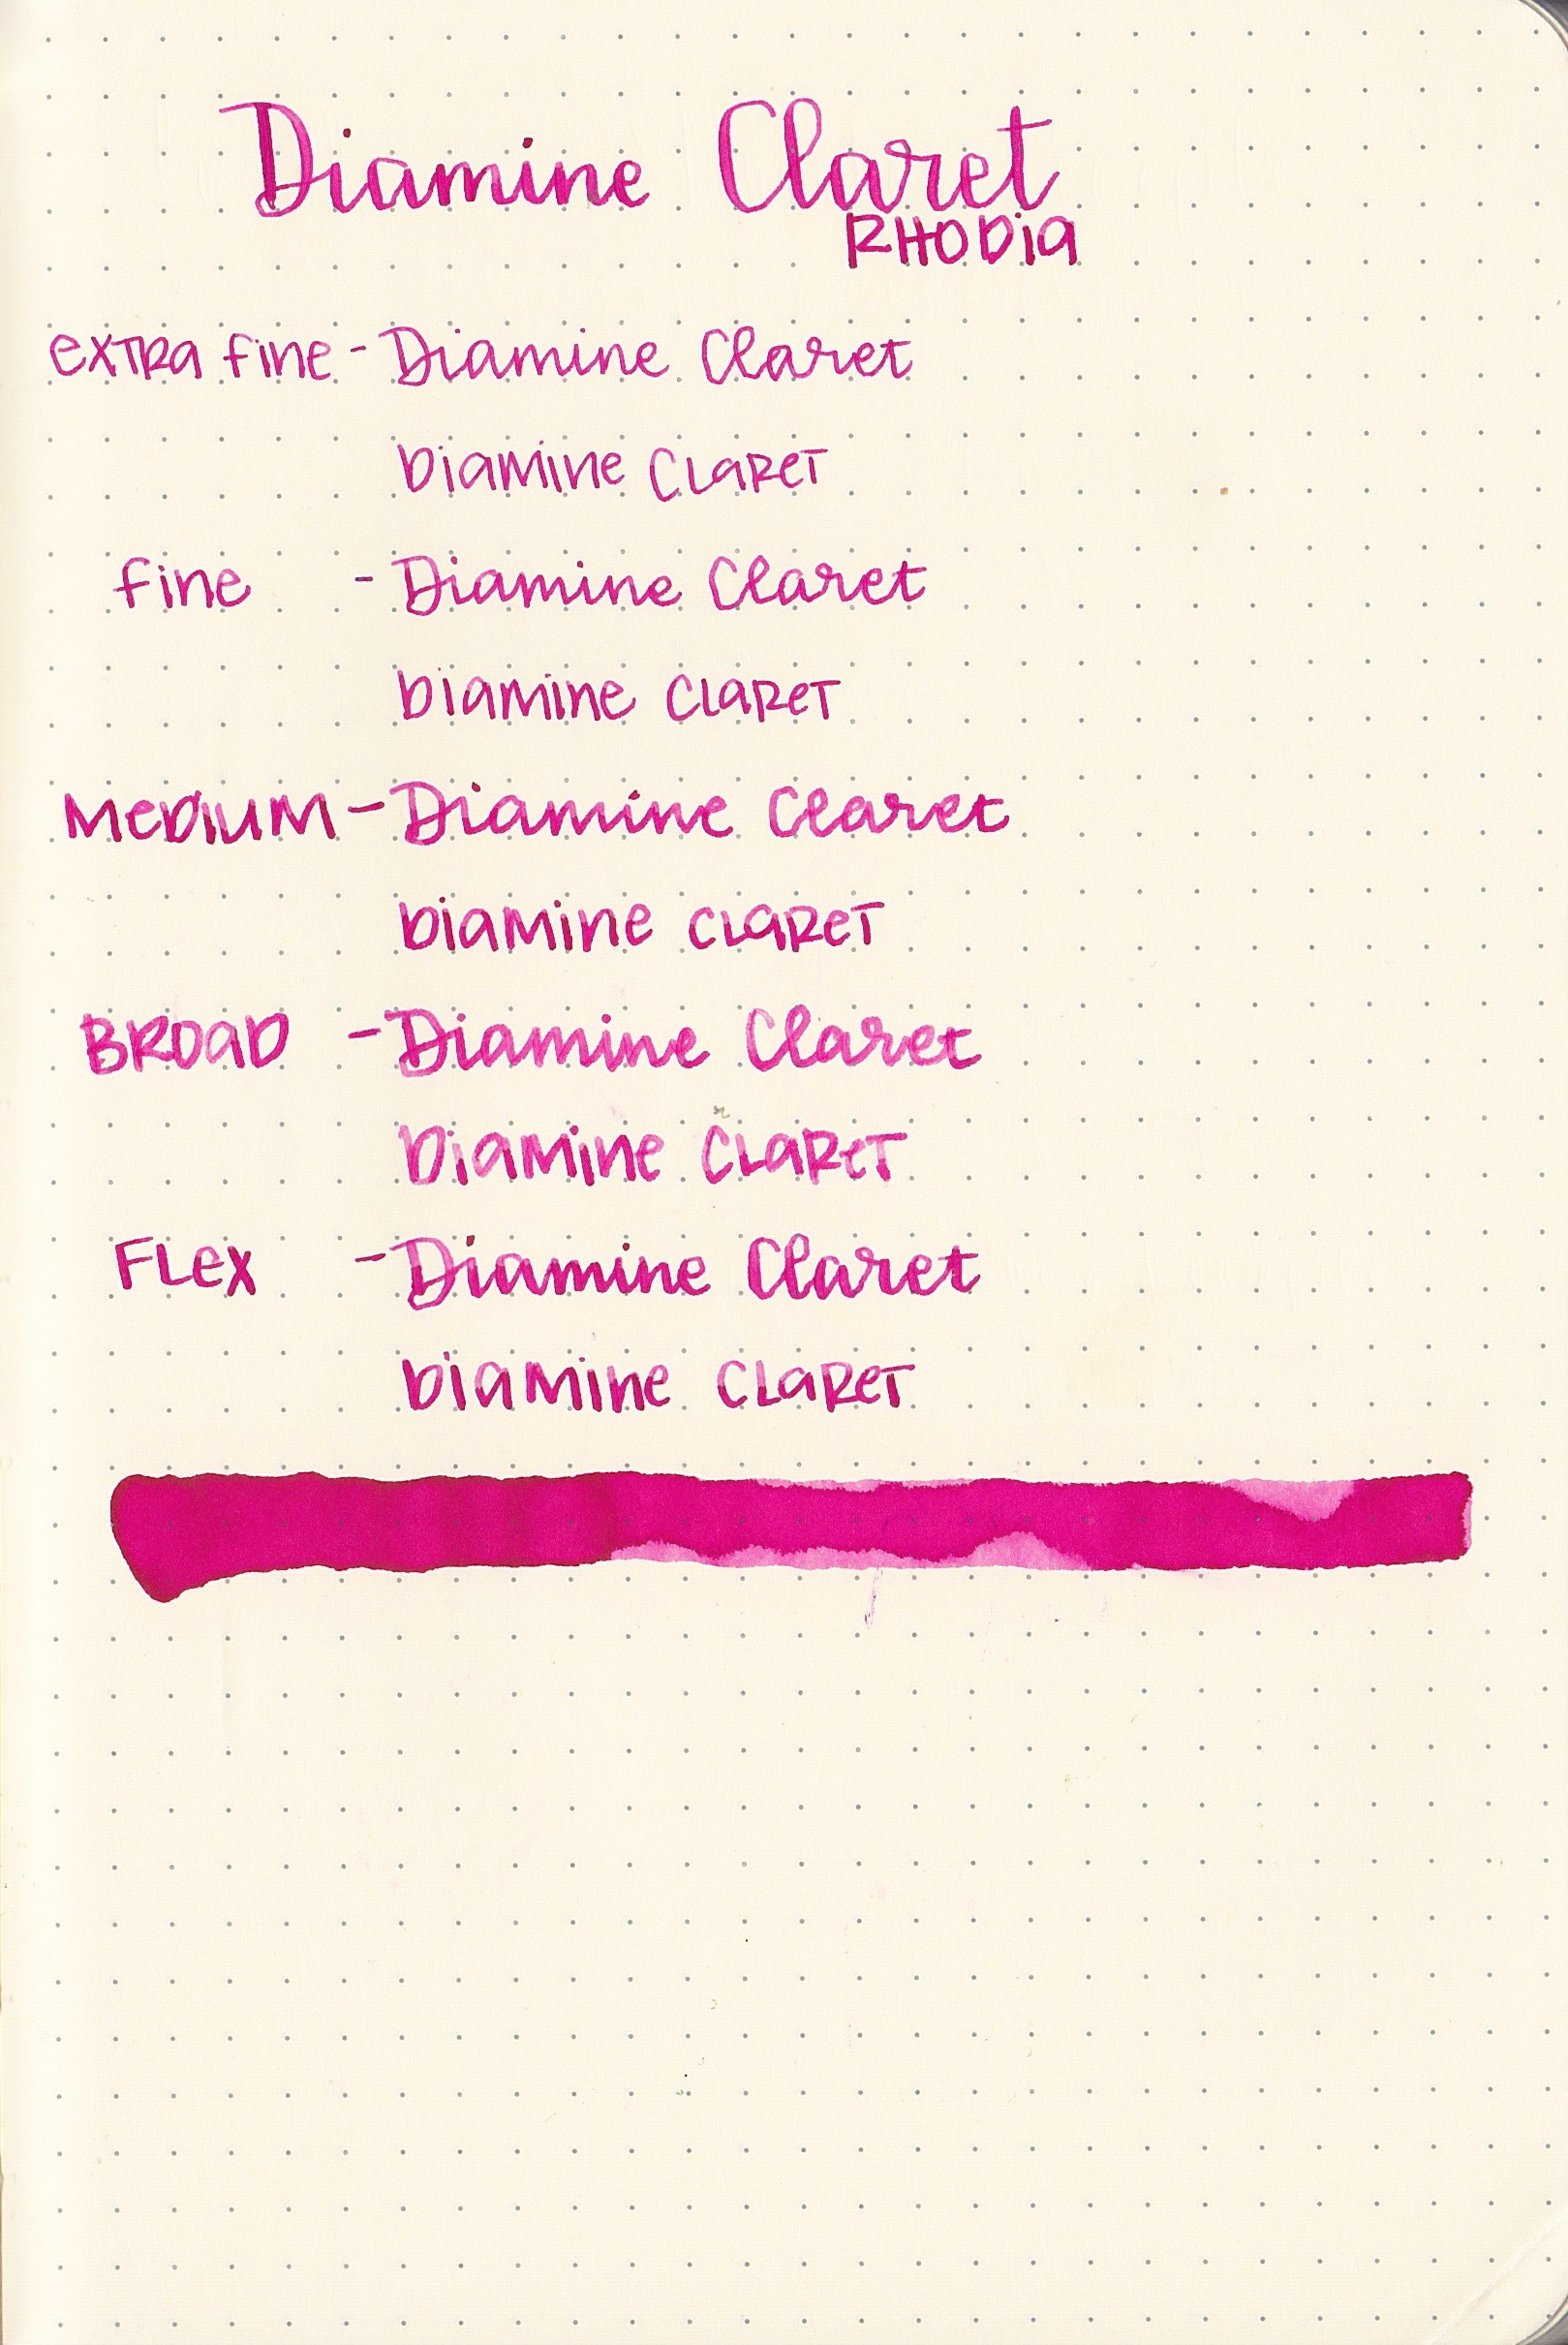 Diamine Claret
RHODIA
EXTRA FINE - Diamine Claret
DIAMINE CLARET
FINE - Diamine Claret
DIAMINE CLARET
MEDIUM - Diamine Claret
DIAMINE CLARET
BROAD - Diamine Claret
DIAMINE CLARET
FLEX - Diamine Claret
DIAMINE CLARET